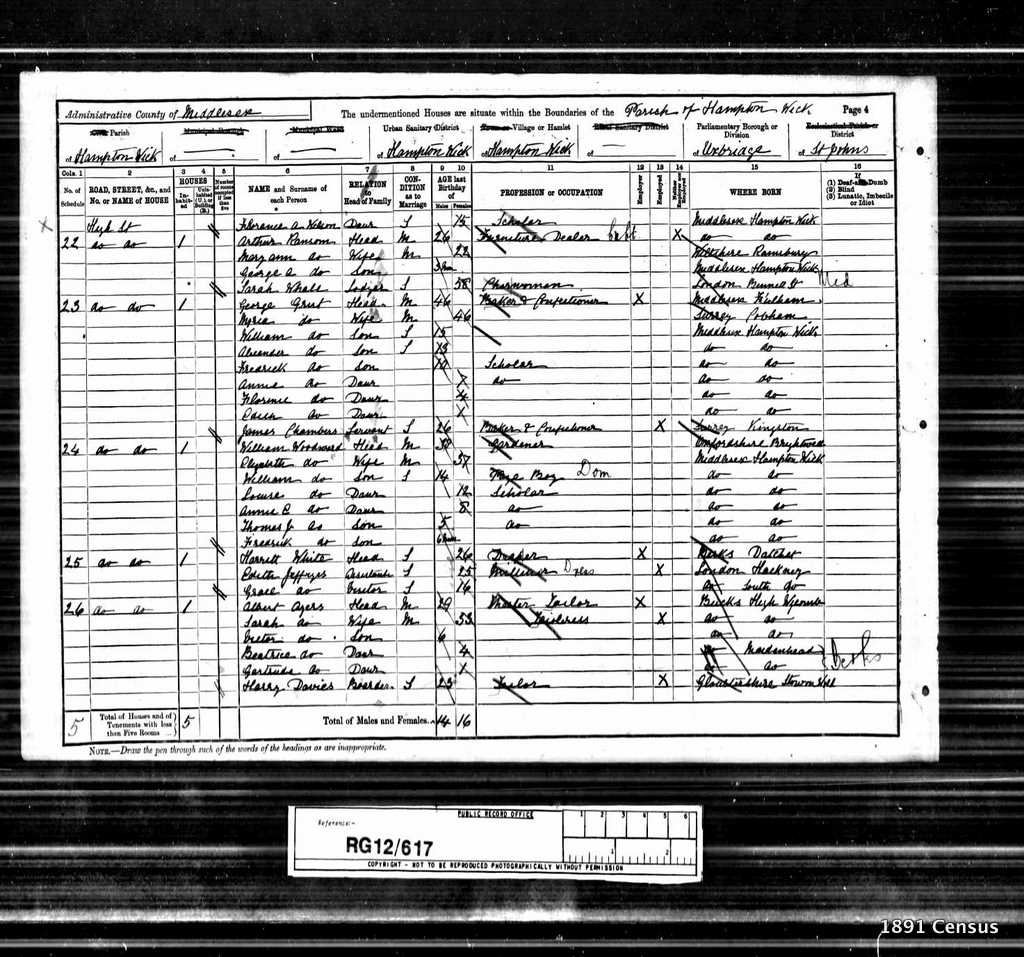 Administrative County of Middlesex The undermentioned Houses are situate within the Boundaries of the Parish of Hampton Wick Page 4
Civil Parish Municipal Borough Municipal Ward Urban Sanitary District Town or Village or Hamlet Rural Sanitary District Parliamentary Borough or Division Ecclesiastical Parish or District
of Hampton Wick of — of — of Hampton Wick of Hampton Wick of — of Uxbridge of St Johns
Cols. 1 2 3 4 5 6 7 8 9 10 11 12 13 14 15 16
No. of Schedule ROAD, STREET, &c., and No. or NAME of HOUSE HOUSES Inhabited Uninhabited (U.) or Building (B.) Number of rooms occupied if less than five NAME and Surname of each Person RELATION to Head of Family CONDITION as to Marriage AGE last Birthday of Males Females PROFESSION or OCCUPATION Employer Employed Neither Employer nor Employed WHERE BORN (1) Deaf-and-Dumb (2) Blind (3) Lunatic, Imbecile or Idiot
High St Florence A. Daur S 15 Scholar Middlesex Hampton Wick
22 do do 1 Arthur Ransom Head M 26 Furniture Dealer X do do
Mary Ann do Wife M 22 Wiltshire Ramsbury
George A. do Son 3 Middlesex Hampton Wick
Sarah Whale Lodger S 58 Charwoman London
23 do do 1 George Grist Head M 46 Baker & Confectioner X Middlesex Fulham
do Wife M 46 Surrey Cobham
William do Son S 15 Middlesex Hampton Wick
Alexander do Son S 13 do do
Fredrick do Son 10 Scholar do do
Annie do Daur 7 do do do
Florence do Daur 4 do do
Edith do Daur 1 do do
James Chambers Servant S 26 Baker & Confectioner X Surrey Kingston
24 do do 1 William Woodward Head M 38 Gardener Oxfordshire
Elizabeth do Wife M 37 Middlesex Hampton Wick
William do Son S 14 Page Boy Dom do do
Louise do Daur 12 Scholar do do
Annie E do Daur 8 do do do
Thomas J do Son 5 do do do
Fredrick do Son 6 do do
25 do do 1 Harriett White Head S 26 Draper X Bucks Datchet
Edith Jeffryes Assistant S 25 Milliner Dress X London Hackney
Grace do Visitor S 16 do South do
26 do do 1 Albert Ayers Head M 29 Master Tailor X Bucks High Wycombe
Sarah do Wife M 33 Tailoress X do do
Victor do Son 6 do do
Beatrice do Daur 4 Maidenhead Berks
Gertrude do Daur 1 do
Harry Davies Boarder S 23 Tailor X Gloucestershire
5 Total of Houses and of Tenements with less than Five Rooms 5 Total of Males and Females 14 16
NOTE.—Draw the pen through such of the words of the headings as are inappropriate.
PUBLIC RECORD OFFICE
Reference:-
RG12/617
1 2 3 4 5 6
1 2
COPYRIGHT - NOT TO BE REPRODUCED PHOTOGRAPHICALLY WITHOUT PERMISSION
1891 Census